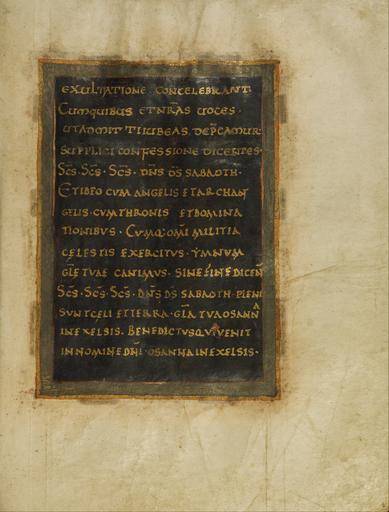 EXULTATIONE CONCELEBRANT.
CUMQUIBUS ETNRAS UOCES.
UTADMITTIIUBEAS. DEPCAMUR.
SUPPLICI CONFESSIONE DICENTES.
SCS. SCS. SCS. DNS DS SABAOTH.
ETIDEO CUM ANGELIS ETARCHAN
GELIS. CUMTHRONIS ETDOMINA
TIONIBUS. CUMQ: OMI MILITIA
CELESTIS EXERCITUS. YMNUM
GLE TUAE CANIMUS. SINE FINE DICEN
SCS. SCS. SCS. DNS DS SABAOTH. PLENI
SUNT CELI ETTERRA. GLA TUA OSANNA
INEXELSIS. BENEDICTUSQUIVENIT
INNOMINE DNI. OSANNA INEXELSIS.